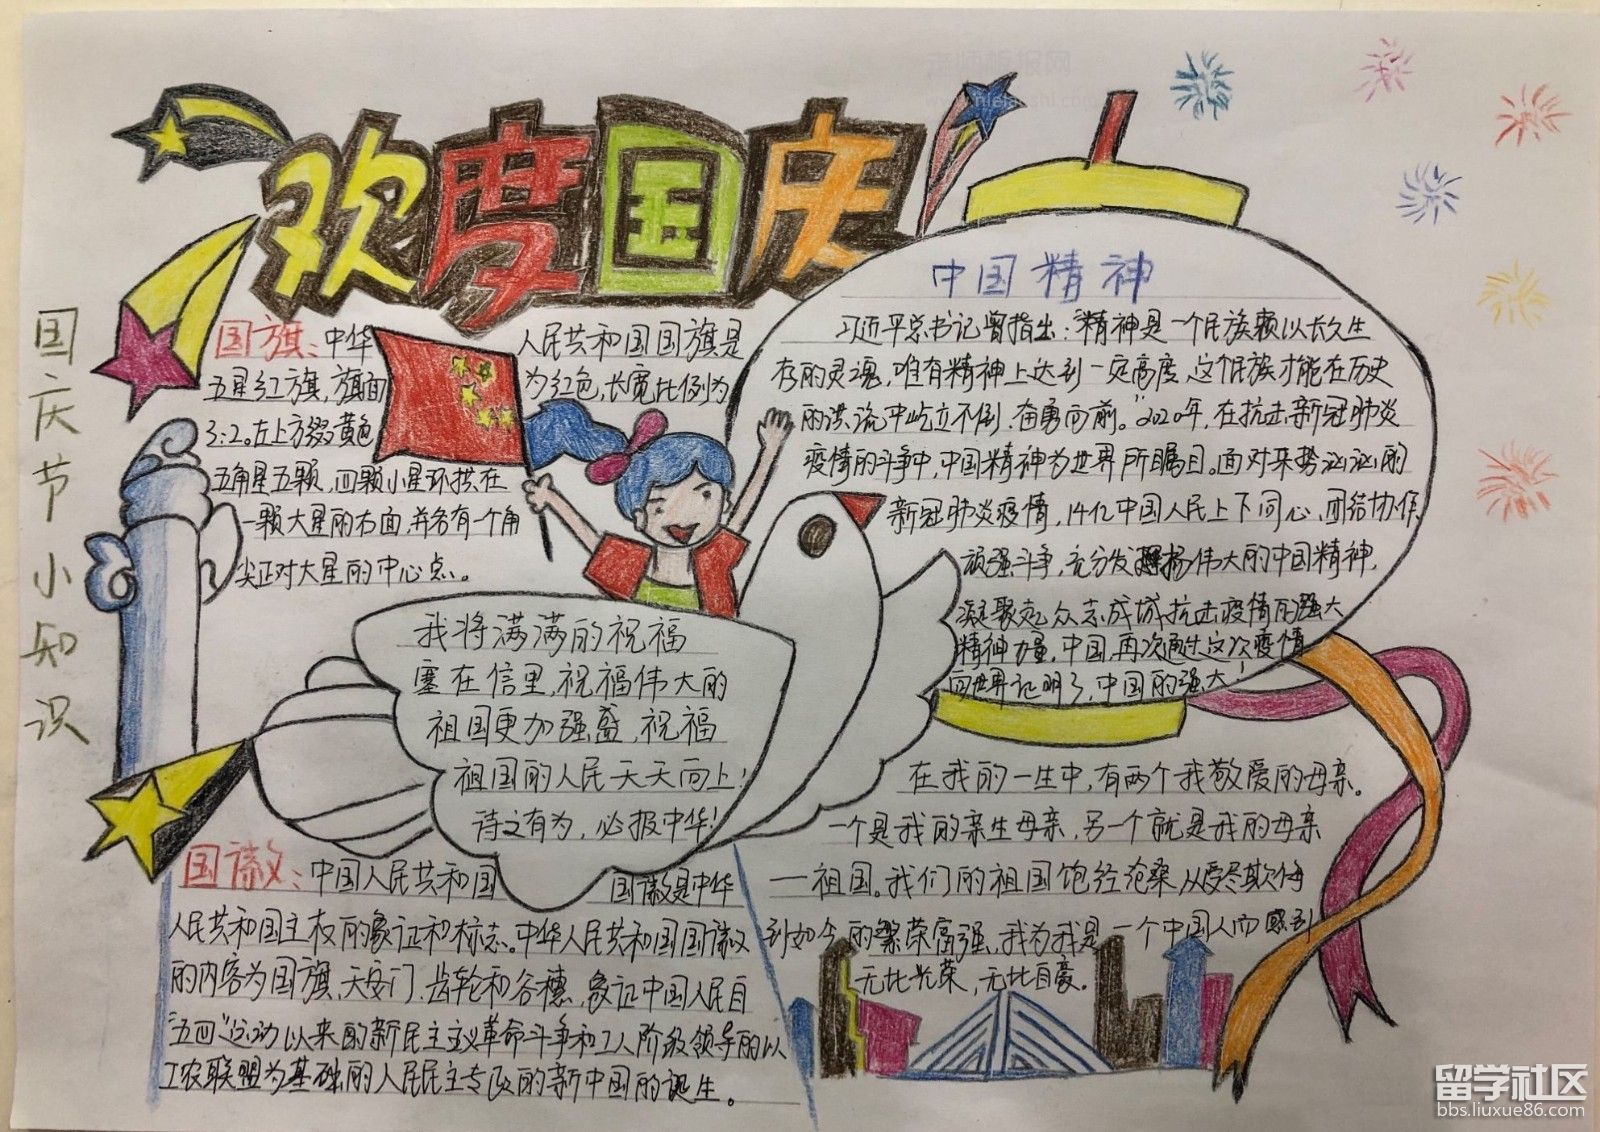 欢度国庆
国庆节小知识
国旗：中华人民共和国国旗是
五星红旗，旗面为红色，长宽比例为
3:2。左上方缀黄色
五角星五颗，四颗小星环拱在
一颗大星的右面，并各有一个角
尖正对大星的中心点。
中国精神
习近平总书记曾指出：“精神是一个民族赖以长久生
存的灵魂，唯有精神上达到一定高度，这个民族才能在历史
的洪流中屹立不倒、奋勇向前。”2020年，在抗击新冠肺炎
疫情的斗争中，中国精神为世界所瞩目。面对来势汹汹的
新冠肺炎疫情，14亿中国人民上下同心，团结协作、
顽强斗争，充分发扬伟大的中国精神，
凝聚起众志成城抗击疫情的强大
精神力量，中国再次通过这次疫情
向世界证明了，中国的强大！
我将满满的祝福
塞在信里，祝福伟大的
祖国更加强盛，祝福
祖国的人民天天向上！
诗文有为，必报中华！
国徽：中国人民共和国国徽是中华
人民共和国主权的象征和标志。中华人民共和国国徽
的内容为国旗、天安门、齿轮和谷穗，象征中国人民自
“五四”运动以来的新民主主义革命斗争和工人阶级领导的以
工农联盟为基础的人民民主专政的新中国的诞生。
在我的一生中，有两个我敬爱的母亲。
一个是我的亲生母亲，另一个就是我的母亲
—祖国。我们的祖国饱经沧桑，从受尽欺侮
到如今的繁荣富强，我为我是一个中国人而感到
无比光荣，无比自豪。
留学社区
bbs.liuxue86.com